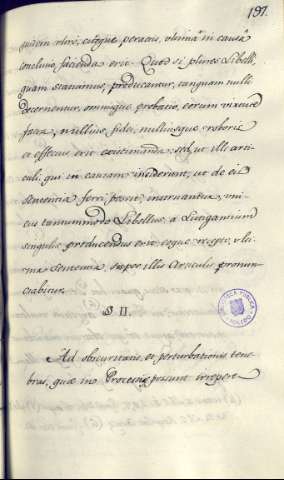 197.
citoque peractis, omnimò in causa
conclusio facienda erit. Quod si plures Libelli,
quam statuimus, producantur, tanquam nulli
decernentur, omnisque probatio, eorum virtute
facta, nullius fidei, nulliusque roboris
et effectus erit existimanda: sed, ut illi arti-
culi, qui in causam inciderint, ut de ei
sententia ferri possit, instruantur, uni-
cus tantummodo Libellus, a Litigantium
singulis producendus erit, eoque recepto, ulti-
ma sententia super illis Articulis pronun-
ciabitur.
§ II.
BIBLIOTECA PUBLICA
TOLEDO
Ad obscuritatis, et perturbationis tene-
bras, quæ in Processu possunt irrepere